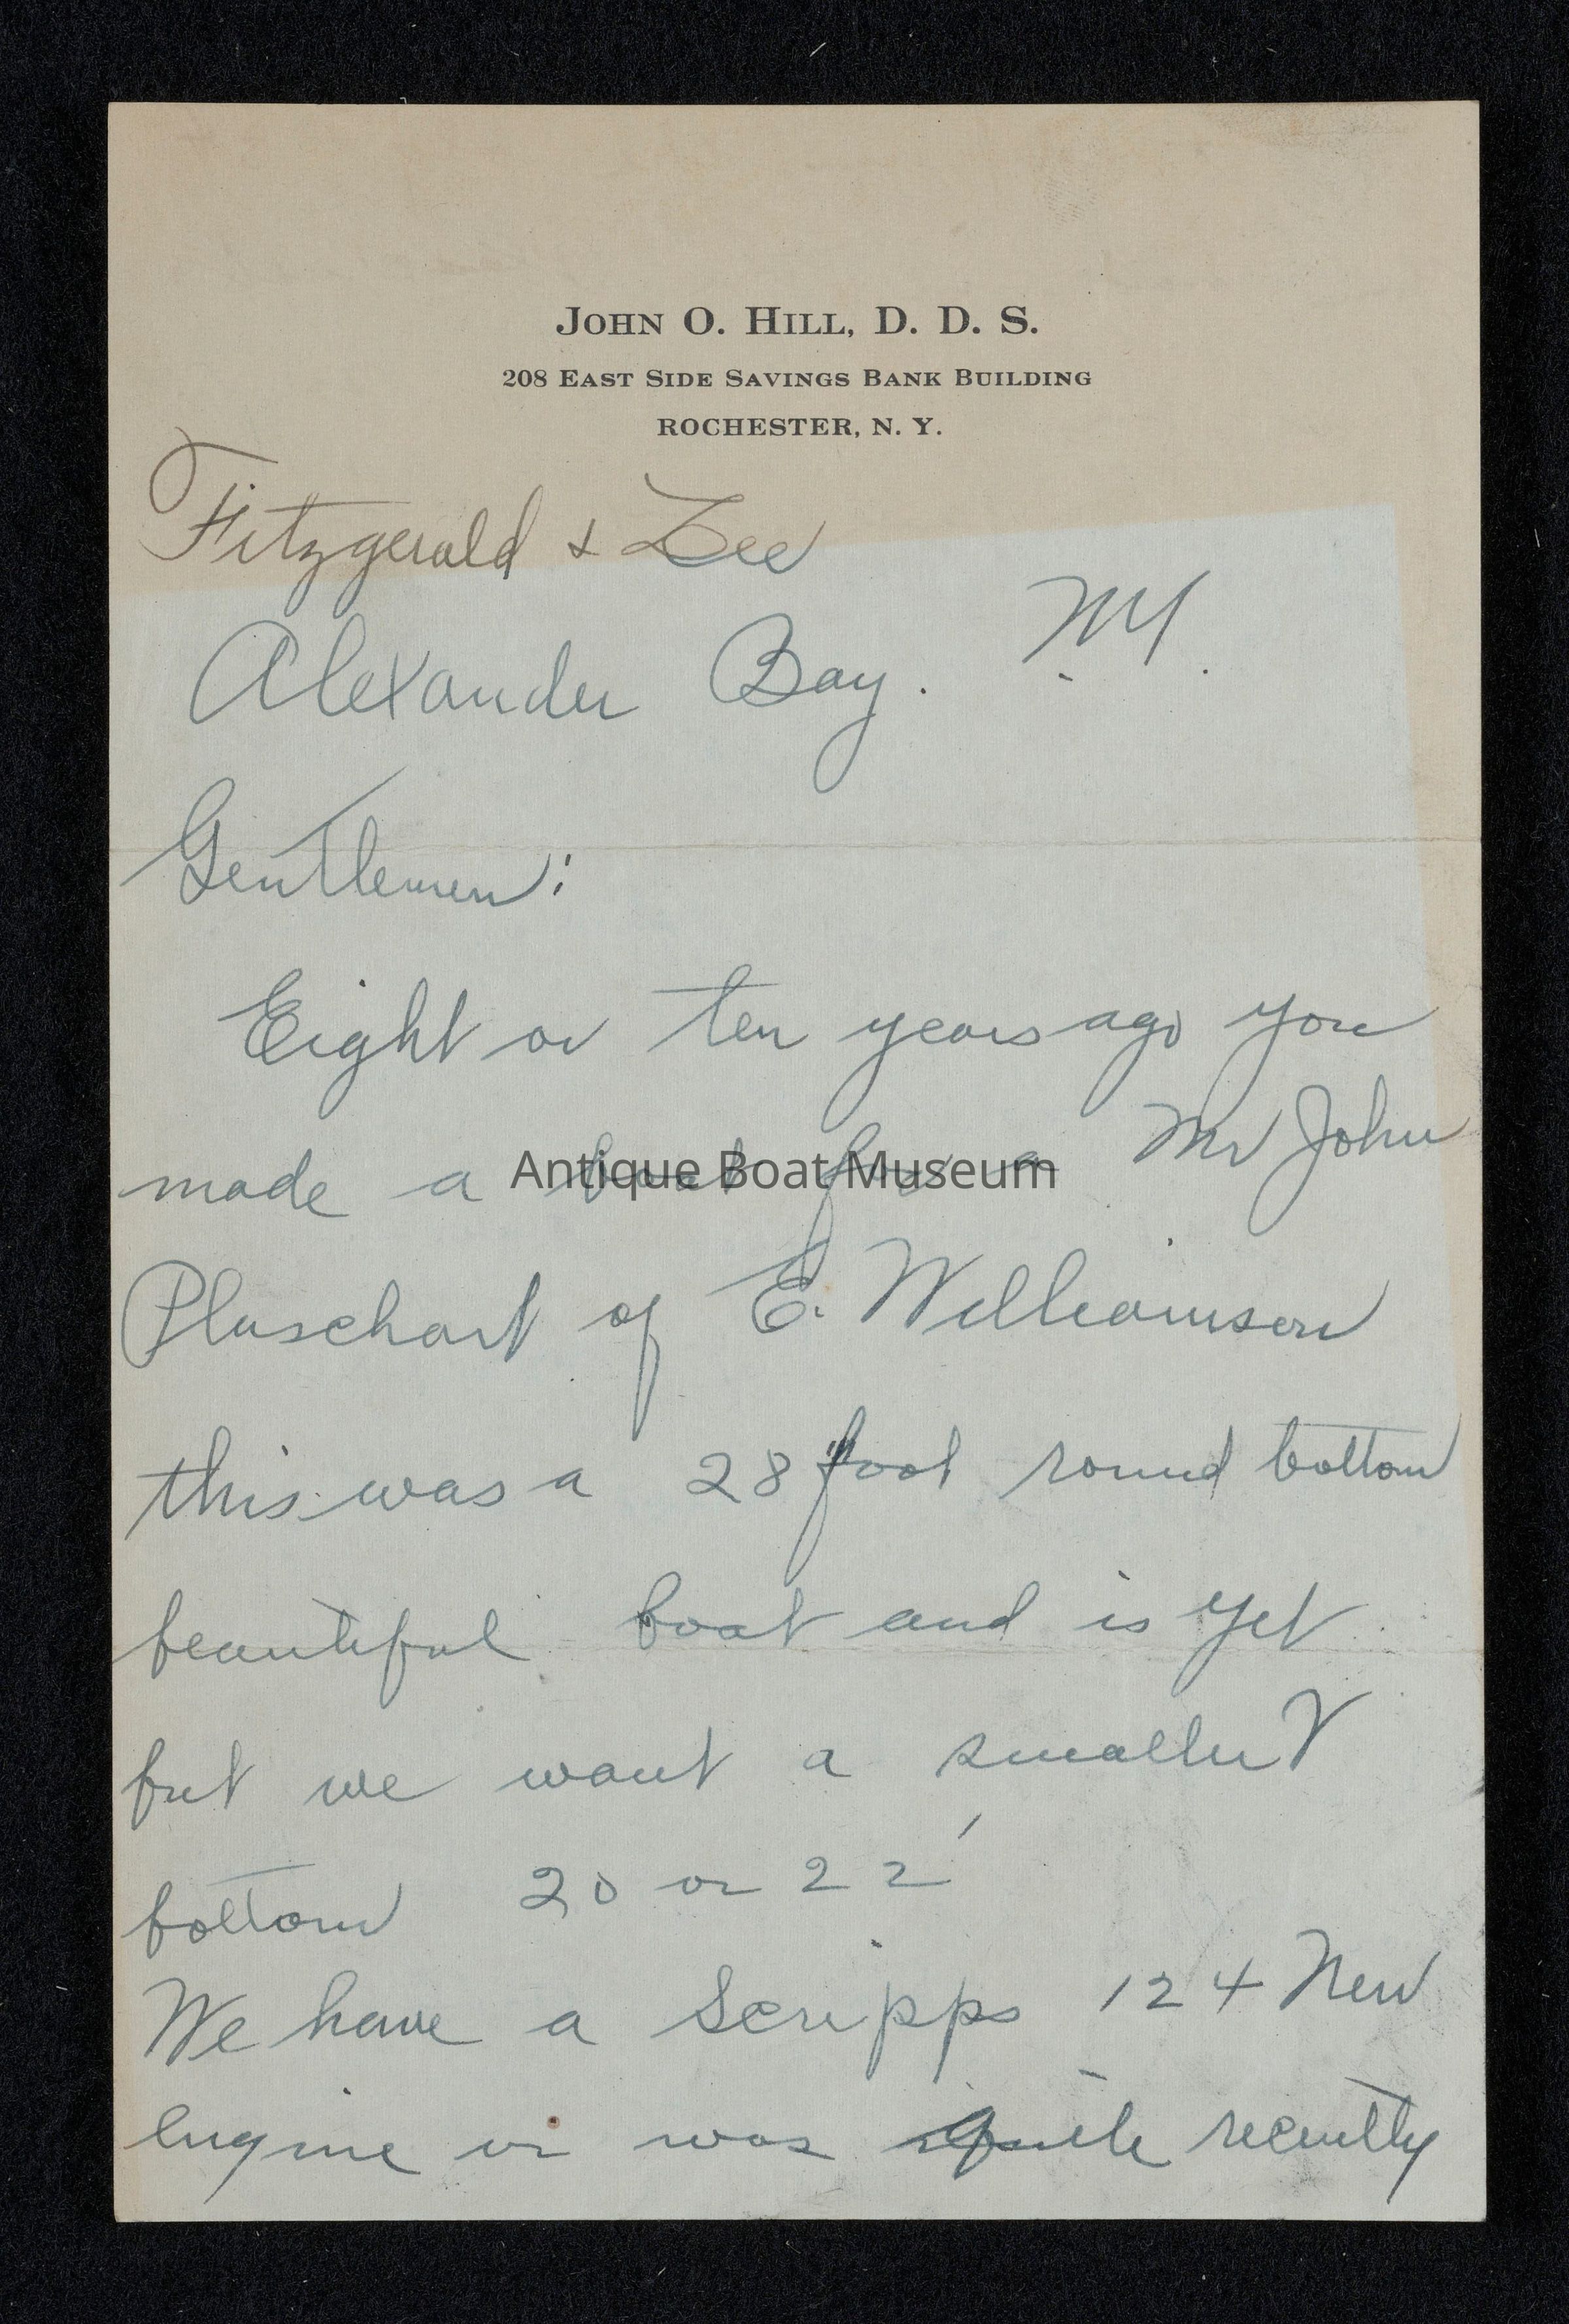 JOHN O. HILL, D. D. S.
208 EAST SIDE SAVINGS BANK BUILDING
ROCHESTER, N. Y.
Fitzgerald & Lee
Alexander Bay. N.Y.
Gentlemen:
Eight or ten years ago you
made a boat for a Mr John
Pluschart of E. Williamson
this was a 28 foot round bottom
beautiful boat and is yet
but we want a smaller V
bottom 20 or 22'
We have a Scripps 124 New
engine or was quite recently
Antique Boat Museum